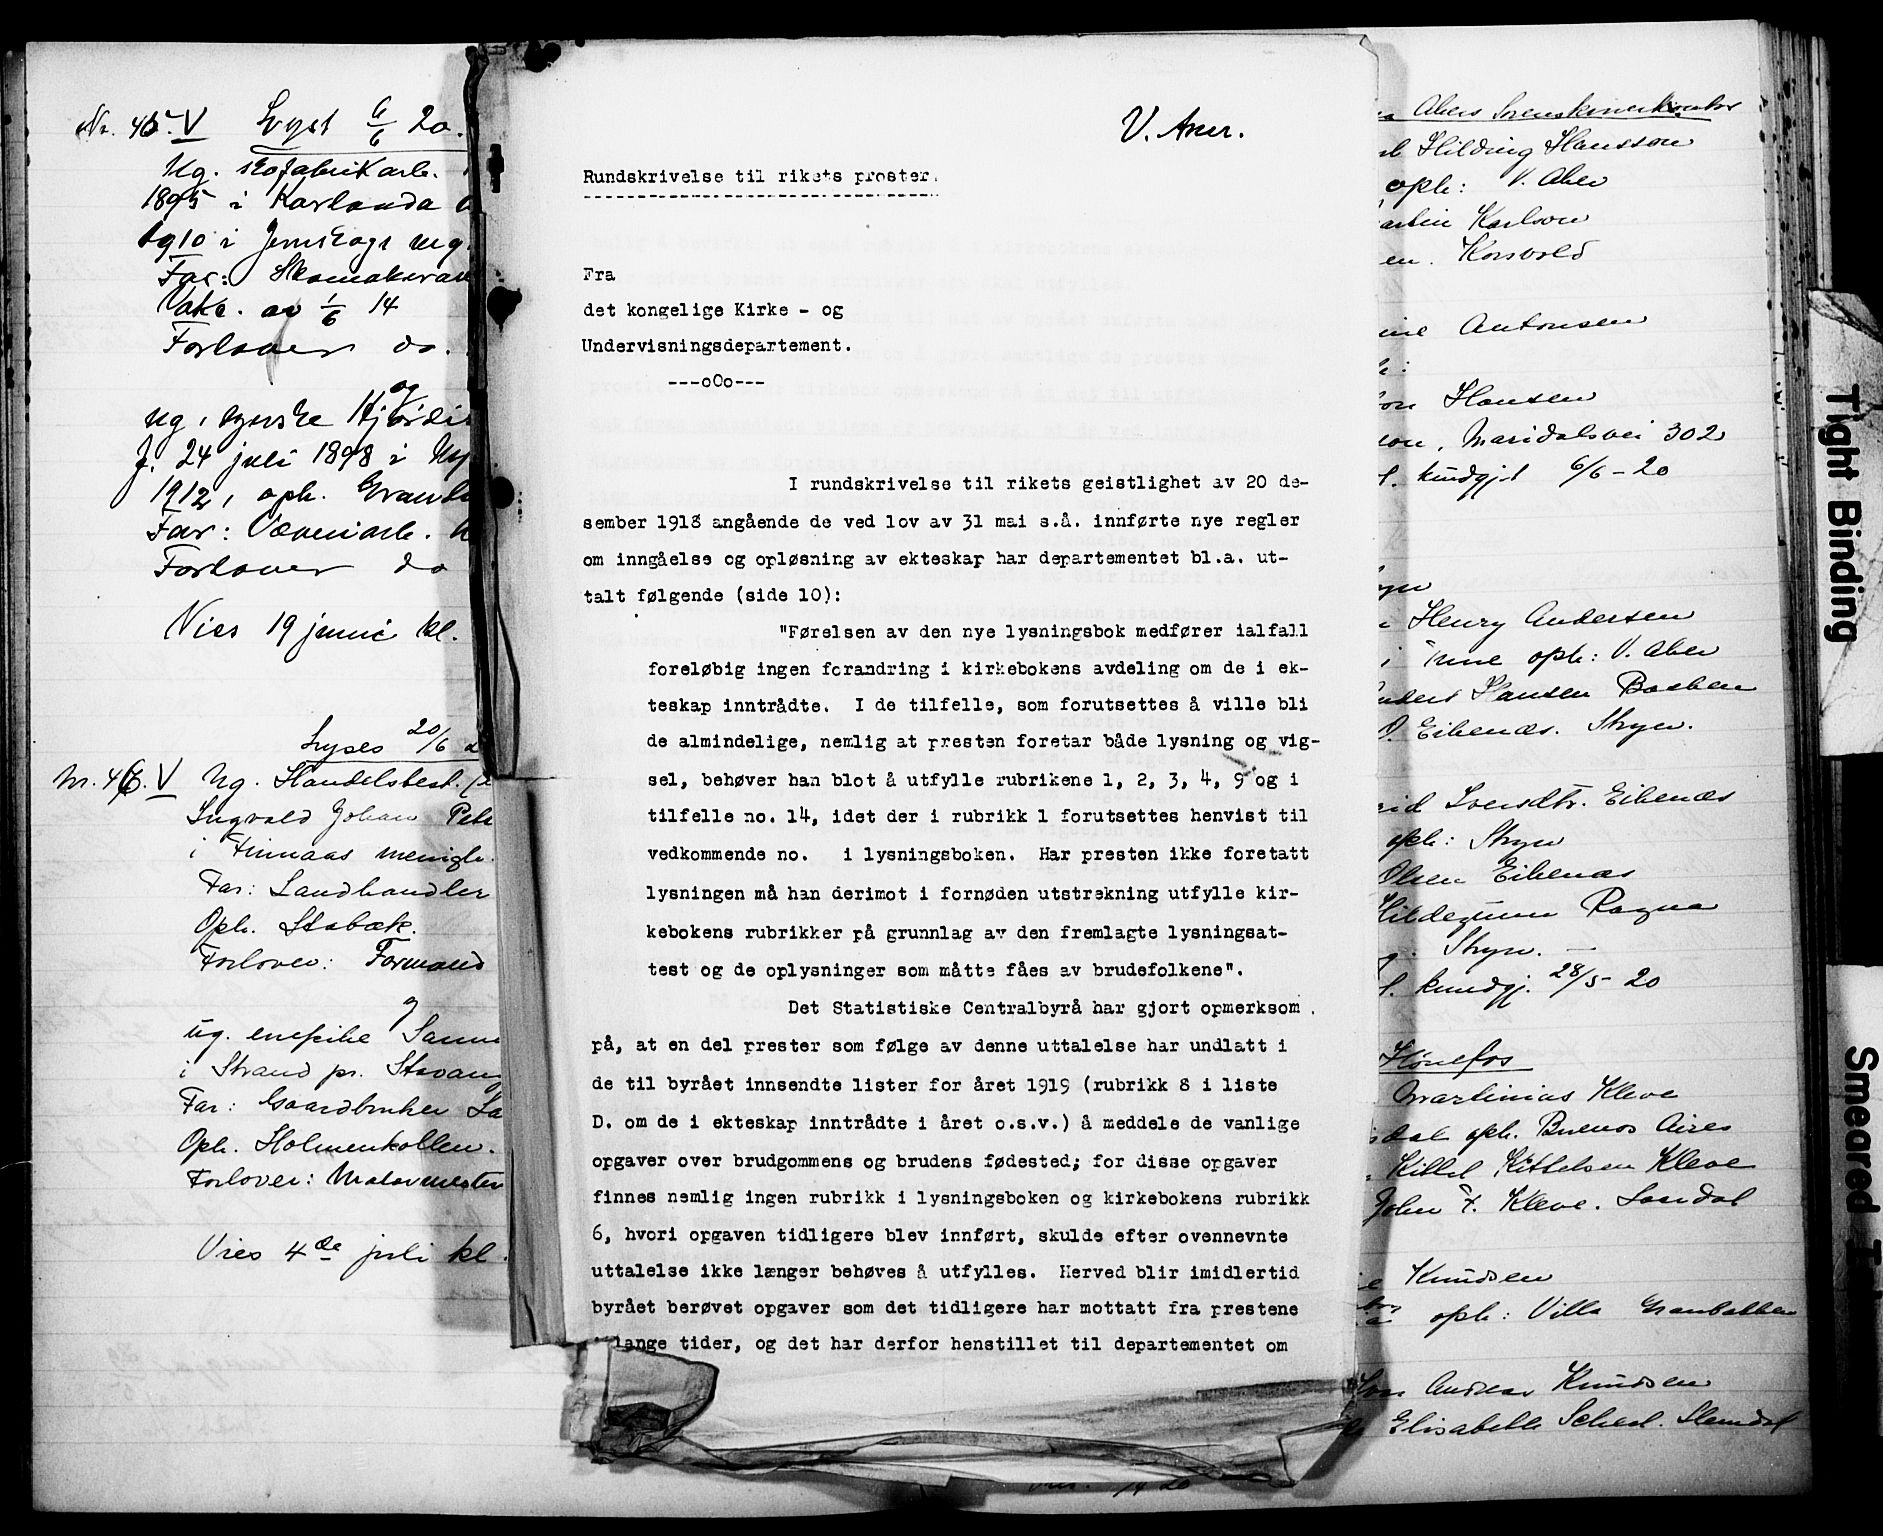 Nr. 45. V Lyst 6/6 20.
Ug. skofabrikarb.
1895 i Karlanda
1910 i Jernskogs
Far: Skomaker
Vaks. av 1/6 14
Forlover do.
og
ug. syerske Hjørdis
f. 24 juli 1898 i
1912, oph.
Far: Væveriarb.
Forlover do
Vies 19 juni kl.
Lyses 20/6
Nr. 46. V Ug. Handelsbest.
Ingvald Johan
i Finnaas menigh.
Far: Landhandler
Oph. Stabæk.
Forlover: Formand
og
ug. enepike
i Strand pr.
Far: Gaardbruker
Oph. Holmenkollen.
Forlover: Motormester
Vies 4de juli kl.
V. Aker.
Rundskrivelse til rikets proster.
Fra
det kongelige Kirke - og
Undervisningsdepartement.
---oOo---
I rundskrivelse til rikets geistlighet av 20 de-
sember 1918 angående de ved lov av 31 mai s.å. innførte nye regler
om inngåelse og opløsning av ekteskap har departementet bl.a. ut-
talt følgende (side 10):
"Førelsen av den nye lysningsbok medfører ialfall
foreløbig ingen forandring i kirkebokens avdeling om de i ek-
teskap inntrådte. I de tilfelle, som forutsettes å ville bli
de almindelige, nemlig at presten foretar både lysning og vig-
sel, behøver han blot å utfylle rubrikene 1, 2, 3, 4, 9 og i
tilfelle no. 14, idet der i rubrikk 1 forutsettes henvist til
vedkommende no. i lysningsboken. Har presten ikke foretatt
lysningen må han derimot i fornøden utstrekning utfylle kir-
kebokens rubrikker på grunnlag av den fremlagte lysningsat-
test og de oplysninger som måtte fåes av brudefolkene".
Det Statistiske Centralbyrå har gjort opmerksom
på, at en del prester som følge av denne uttalelse har undlatt i
de til byrået innsendte lister for året 1919 (rubrikk 8 i liste
D. om de i ekteskap inntrådte i året o.s.v.) å meddele de vanlige
opgaver over brudgommens og brudens fødested; for disse opgaver
finnes nemlig ingen rubrikk i lysningsboken og kirkebokens rubrikk
6, hvori opgaven tidligere blev innført, skulde efter ovennevnte
uttalelse ikke længer behøves å utfylles. Herved blir imidlertid
byrået berøvet opgaver som det tidligere har mottatt fra prestene
lange tider, og det har derfor henstillet til departementet om
Hilding Hansson
oph: V. Aker
Karlson
Korsvold
Antonsen
Hansen
Maridalsvei 302
kundgjel 6/6-20
Henry Andersen
oph: V. Aker
Hansen Bakken
Eikenæs. Stryn.
Iversdtr. Eikenæs
oph: Stryn
Olsen Eikenæs
Ragna
Stryn.
kundgj. 28/5-20
Hønefos
Martinius Kleve
oph. Buenos Aires
Kittel Kittelsen Kleve
John T. Kleve. Sandal
Knudsen
oph: Villa Granbakken
Andreas Knudsen
Elisabeth Scheel. Slemdal
Tight Binding
Smeared